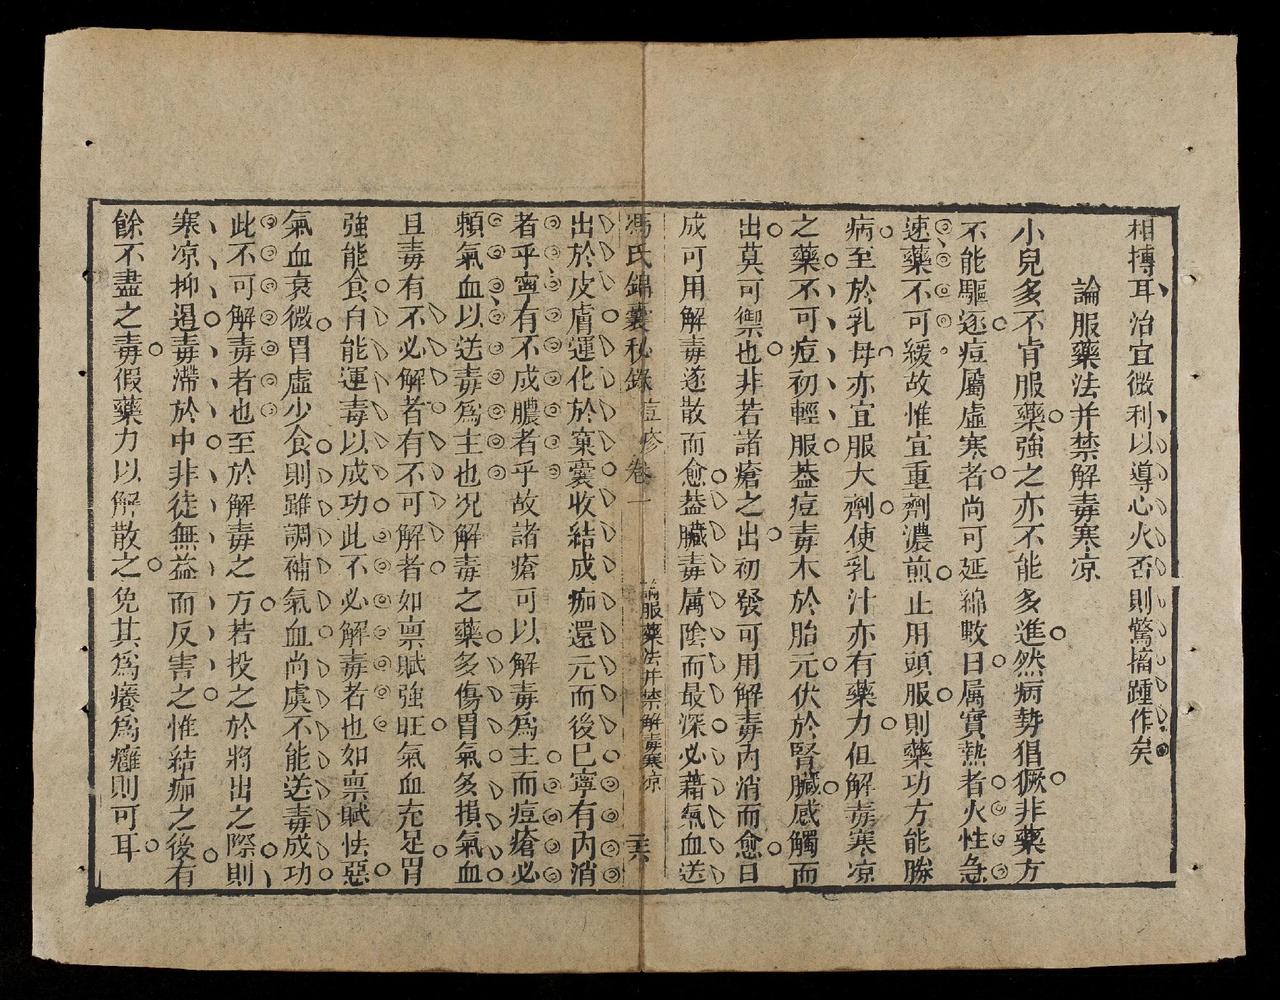 相搏耳治宜微利以導心火否則驚搐踵作矣
論服藥法并禁解毒寒凉
小兒多不肯服藥強之亦不能多進然病勢猖獗非藥方
不能驅逐痘屬虛寒者尚可延綿數日属實熱者火性急
速藥不可緩故惟宜重劑濃煎止用頭服則藥功方能勝
病至於乳母亦宜服大劑使乳汁亦有藥力但解毒寒凉
之藥不可痘初輕服葢痘毒木於胎元伏於腎臟感觸而
出莫可禦也非若諸瘡之出初發可用解毒內消而愈日
成可用解毒遂散而愈葢臟毒属陰而最深必藉氣血送
馮氏錦囊秘錄 痘疹卷一 論服藥法并禁解毒寒凉 三六
出於皮膚運化於窠囊收結成痂還元而後巳寧有內消
者乎寧有不成膿者乎故諸瘡可以解毒爲主而痘瘡必
頼氣血以送毒爲主也况解毒之藥多傷胃氣多損氣血
且毒有不必解者有不可解者如禀賦強旺氣血充足胃
強能食自能運毒以成功此不必解毒者也如禀賦怯惡
氣血衰微胃虛少食則雖調補氣血尚虞不能送毒成功
此不可解毒者也至於解毒之方若投之於將出之際則
寒凉抑遏毒滯於中非徒無益而反害之惟結痂之後有
餘不盡之毒假藥力以解散之免其爲癢爲癰則可耳